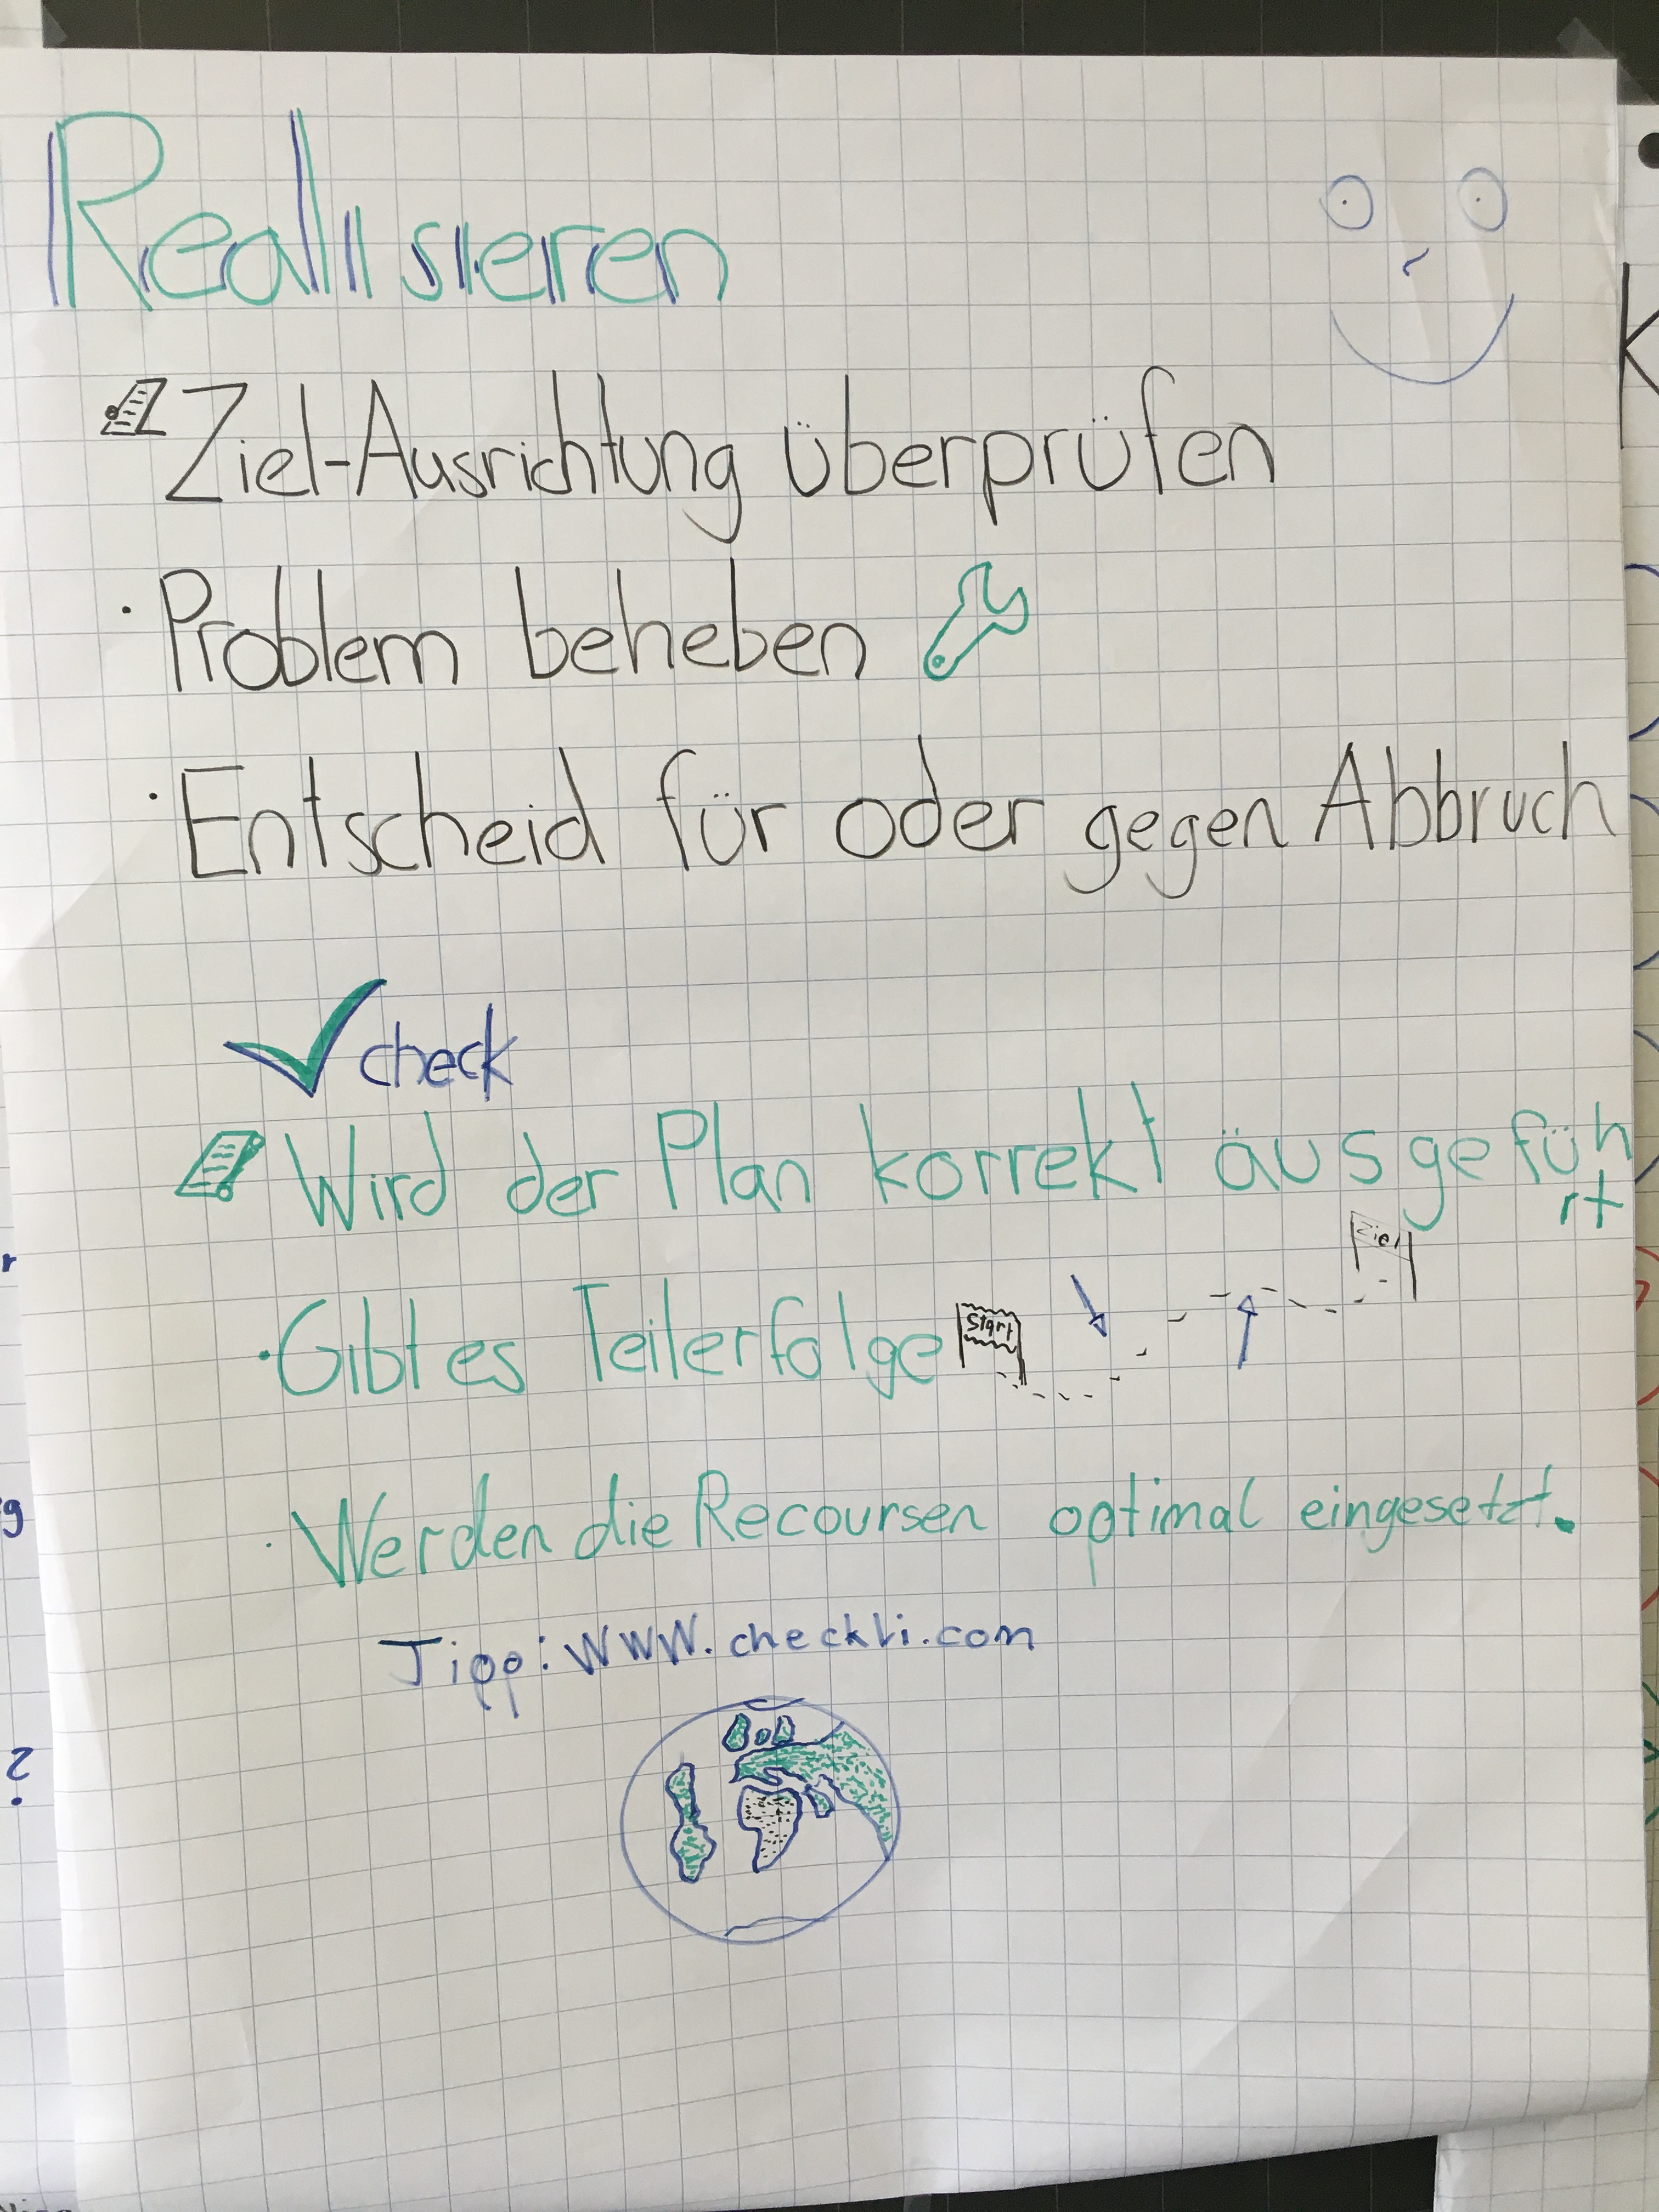 Realisieren
Ziel-Ausrichtung überprüfen
· Problem beheben
· Entscheid für oder gegen Abbruch
check
Wird der Plan korrekt äusgefüh
rt
Ziel
· Gibt es Teilerfolge
Start
· Werden die Recoursen optimal eingesetzt.
Tipp: WWW.checkli.com